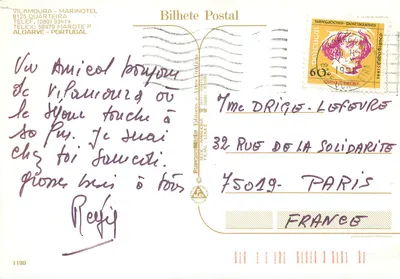 VILAMOURA - MARINOTEL
8125 QUARTEIRA
ALGARVE - PORTUGAL
Bilhete Postal
60
Un amical bonjour
de Vilamoura où
le séjour touche à
sa fin. Je serai
chez toi Samedi.
grosses bises à tous
Régis
Mme DRIGE-LEFEVRE
32 RUE DE LA SOLIDARITE
75019 - PARIS
FRANCE
1100